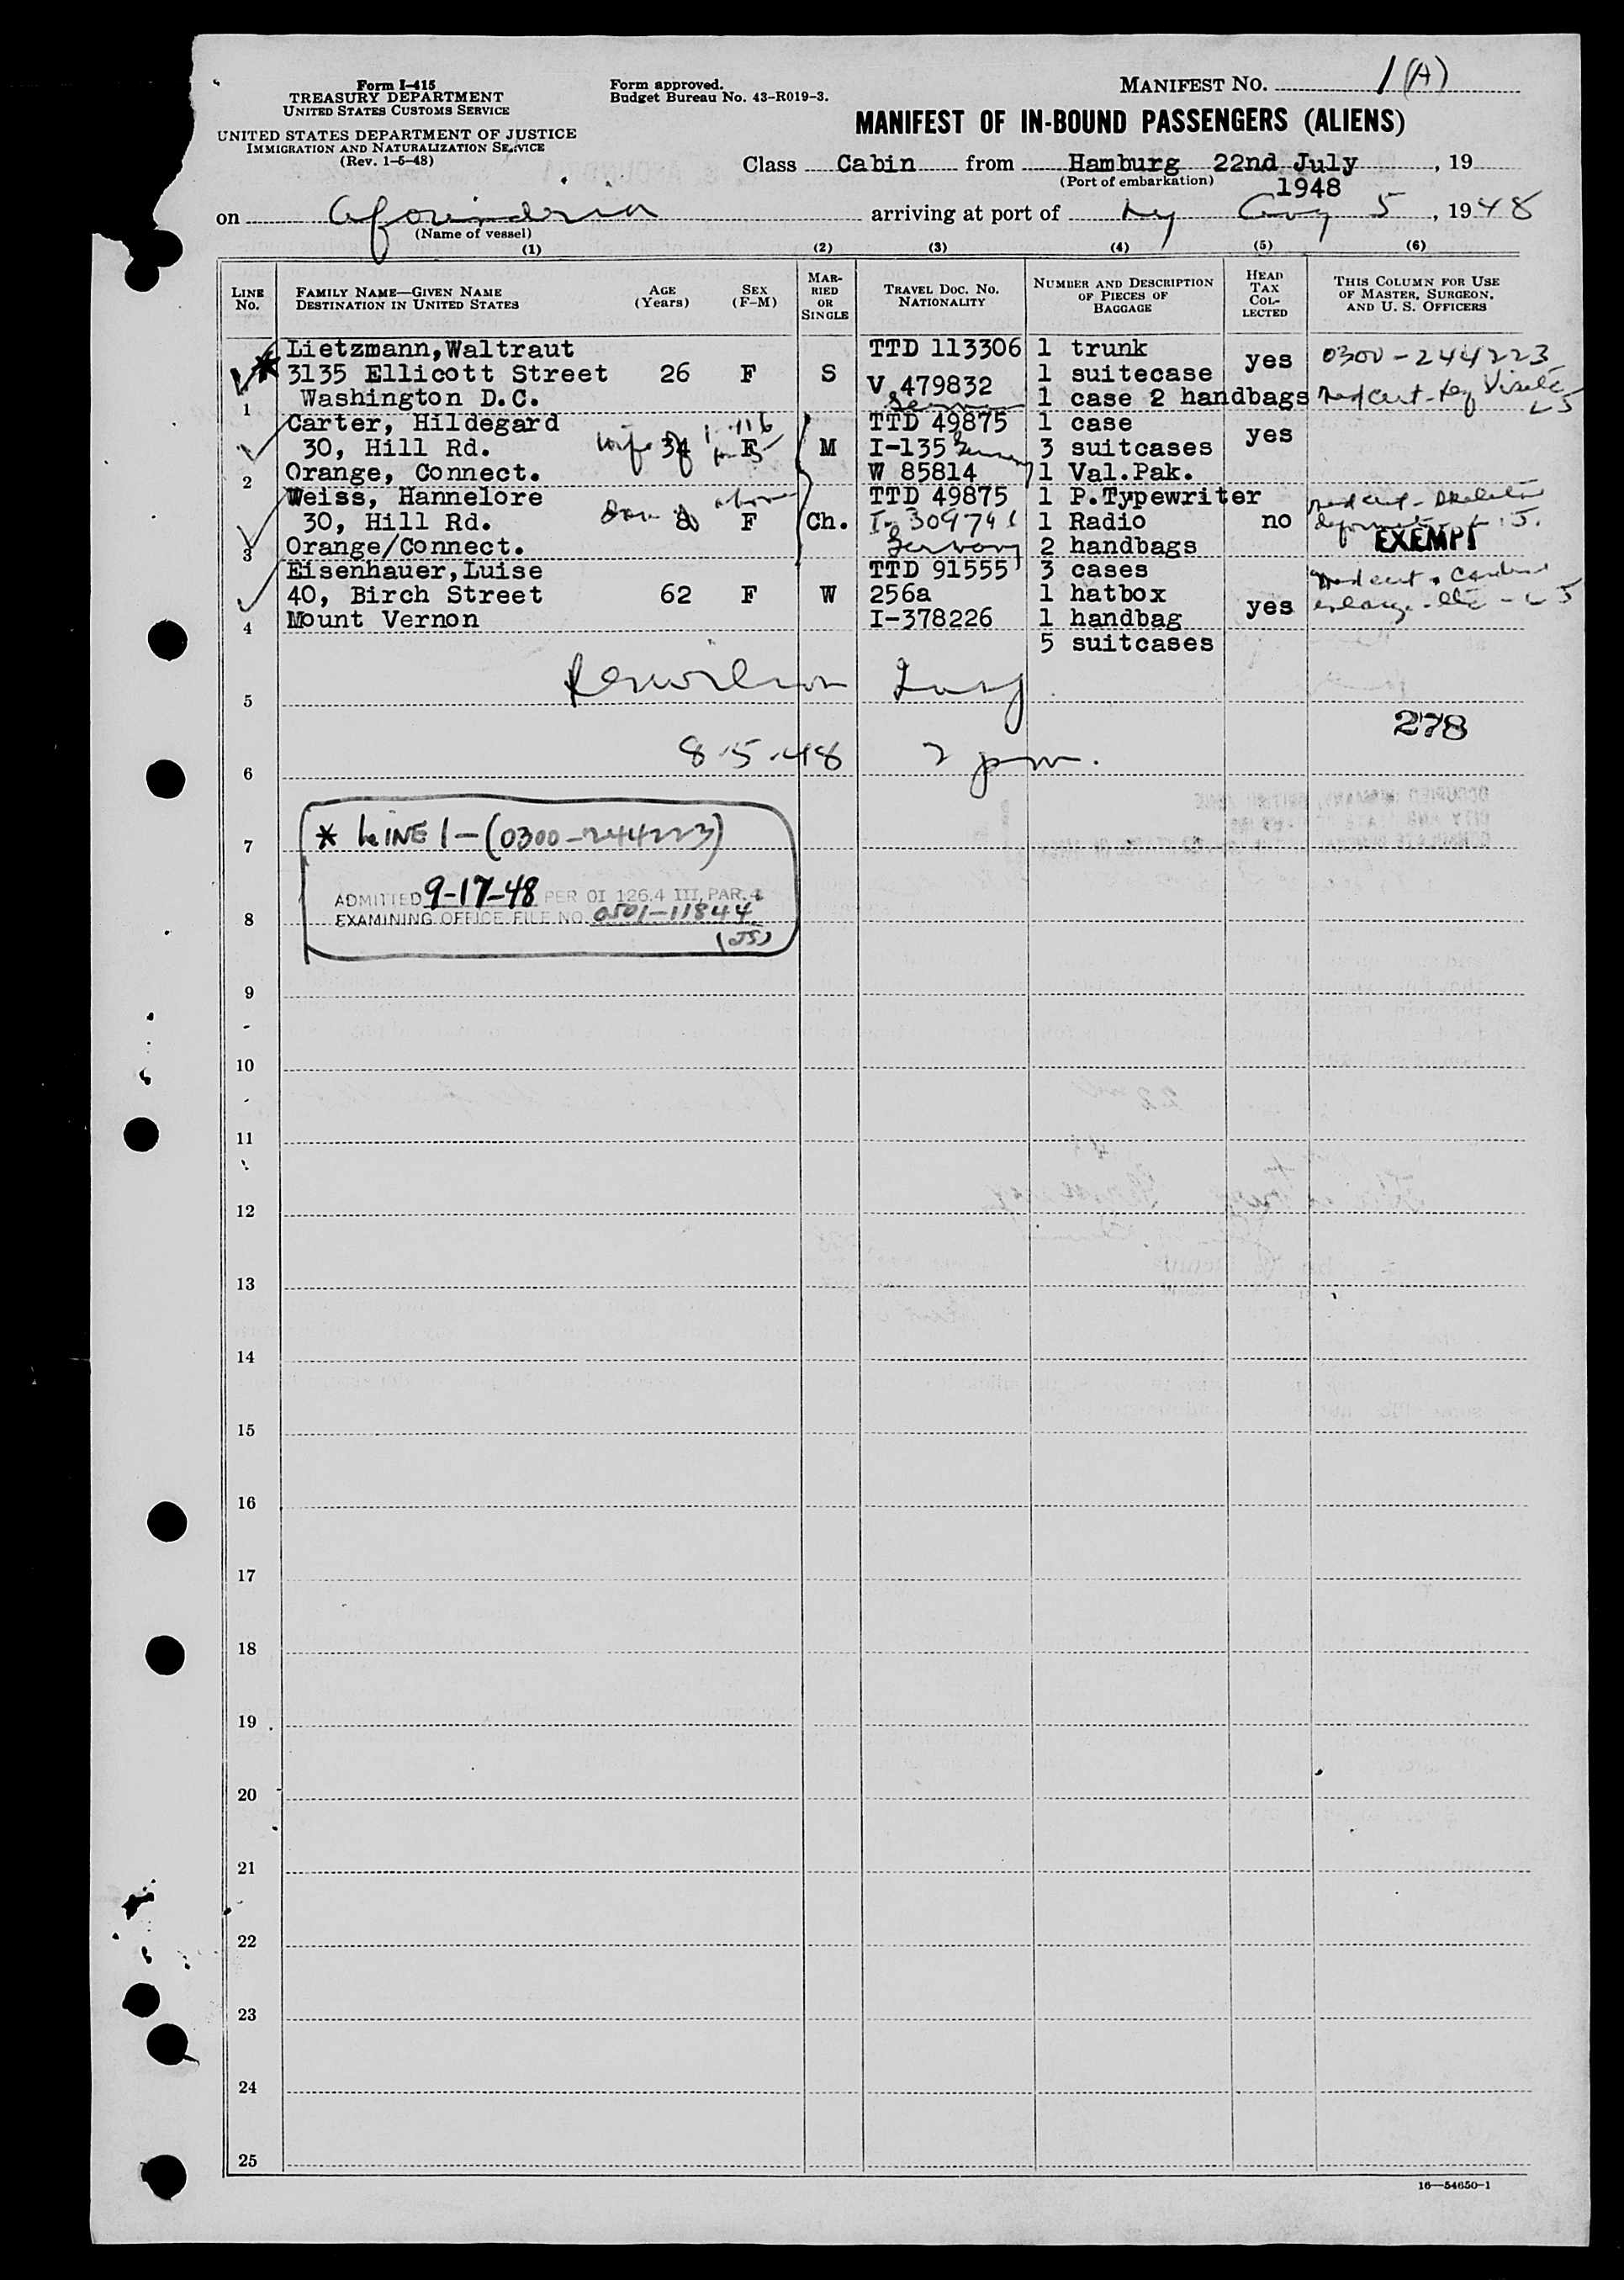 Form I-415
TREASURY DEPARTMENT
UNITED STATES CUSTOMS SERVICE
UNITED STATES DEPARTMENT OF JUSTICE
IMMIGRATION AND NATURALIZATION SERVICE
(Rev. 1-5-48)
Form approved.
Budget Bureau No. 43-R019-3.
MANIFEST NO. 1 (A)
MANIFEST OF IN-BOUND PASSENGERS (ALIENS)
Class Cabin from Hamburg 22nd July, 19
(Port of embarkation) 1948
on arriving at port of Ny Aug 5, 1948
(Name of vessel)
(1) (2) (3) (4) (5) (6)
LINE No.
FAMILY NAME—GIVEN NAME
DESTINATION IN UNITED STATES
AGE (Years)
SEX (F-M)
MARRIED OR SINGLE
TRAVEL DOC. NO.
NATIONALITY
NUMBER AND DESCRIPTION OF PIECES OF BAGGAGE
HEAD TAX COLLECTED
THIS COLUMN FOR USE OF MASTER, SURGEON, AND U. S. OFFICERS
Lietzmann, Waltraut TTD 113306 1 trunk
3135 Ellicott Street 26 F S V 479832 1 suitecase yes 0300-244223
1 Washington D.C. 1 case 2 handbags
Carter, Hildegard TTD 49875 1 case
30, Hill Rd. wife of 34 F M I-135 3 suitcases yes
2 Orange, Connect. W 85814 1 Val.Pak.
Weiss, Hannelore TTD 49875 1 P.Typewriter
30, Hill Rd. 8 F Ch. 1 Radio no
3 Orange/Connect. Germany 2 handbags EXEMPT
Eisenhauer, Luise TTD 91555 3 cases
40, Birch Street 62 F W 256a 1 hatbox yes
4 Mount Vernon I-378226 1 handbag
5 suitcases
5
278
6 8.5.48 2 pm.
7 * LINE 1-(0300-244223)
ADMITTED 9-17-48 PER OI 126.4 III, PAR. 4
8 EXAMINING OFFICE FILE NO. 0501-11844
(JS)
9
10
11
12
13
14
15
16
17
18
19
20
21
22
23
24
25
16—54650-1